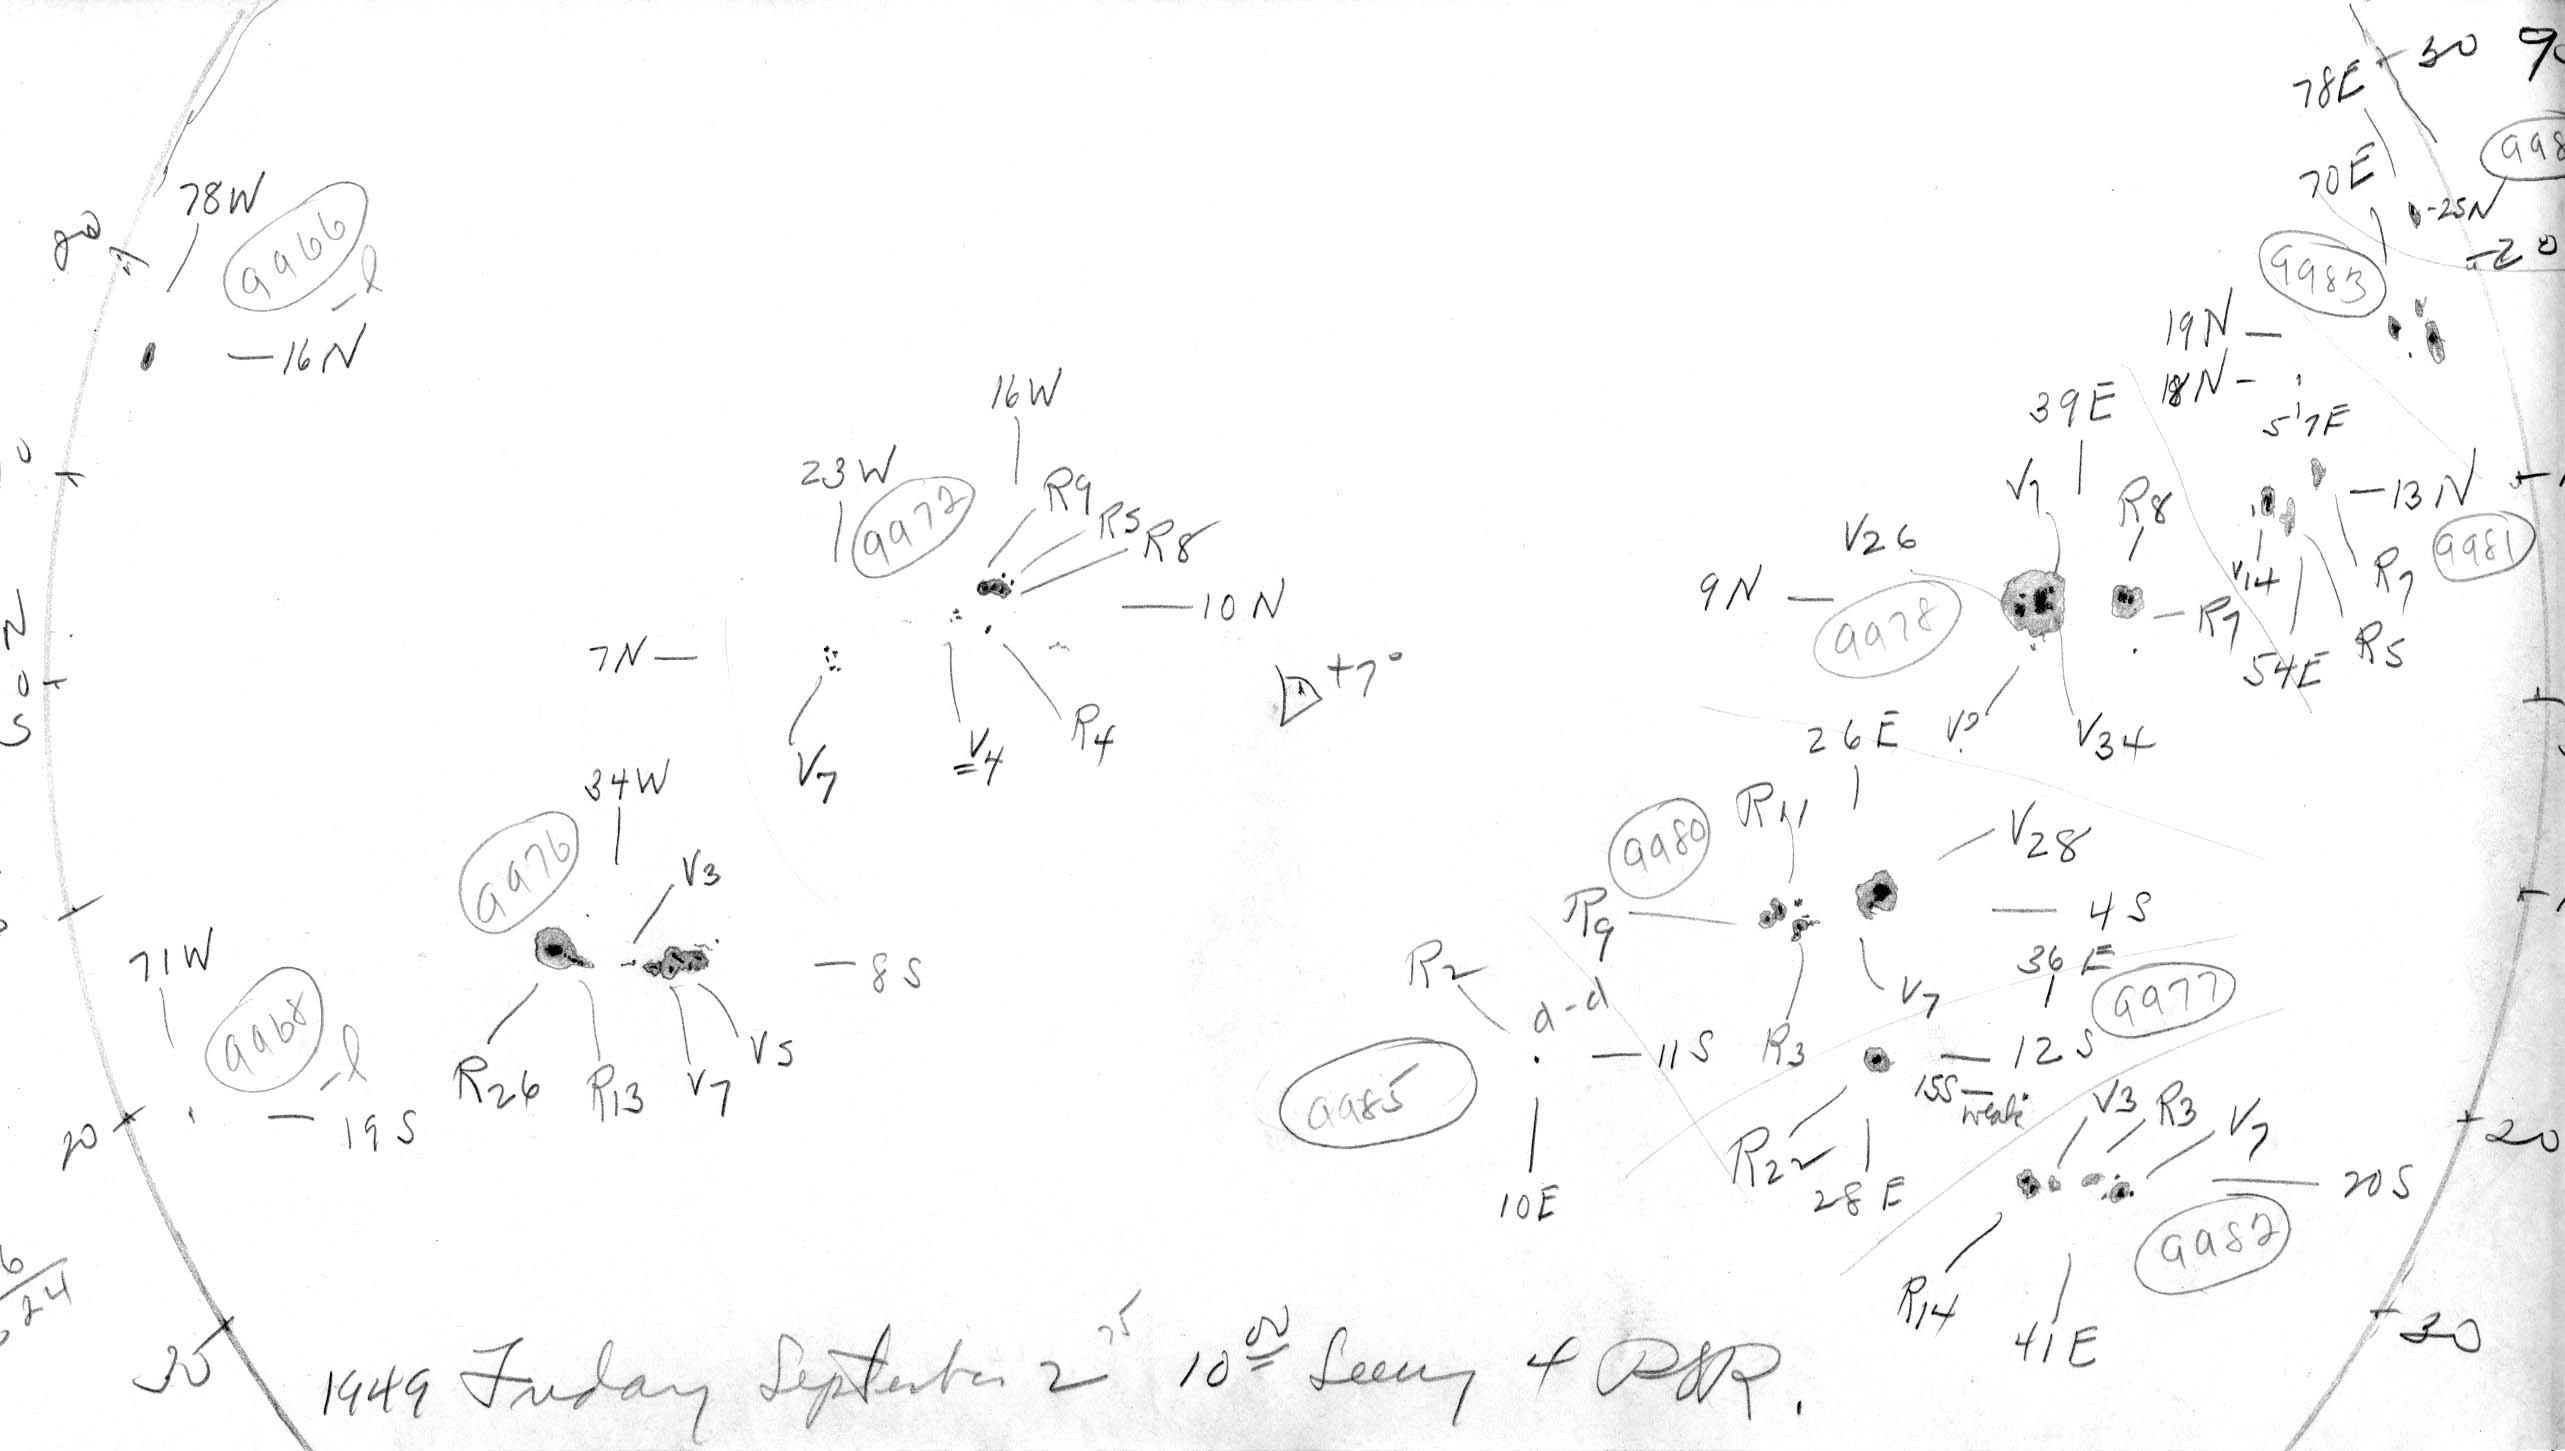 78E
30
78W
80
9966
-l
-16N
70E
-25N
20
9983
19N-
18N-
57E
16W
39E
23W
9972
R9
R5
R8
V7
R8
-13N
9981
V26
9N-
9978
V14
R7
R7
R5
54E
-10N
7N-
+7°
V7
V4
R4
26E
V?
V34
34W
9976
V3
R11
9980
V28
R9
-4S
-8S
71W
9968
-l
36E
9977
R2
d-d
V7
-11S
R3
-12S
15S-
weak
R26
R13
V7
V5
20
-19S
9985
V3
R3
V7
20
R22
28E
10E
-20S
9982
R14
41E
24
30
30
1949 Friday September 2 10 00 Seeing 4